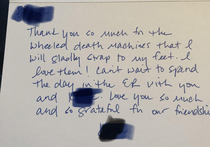 Thank you so much for the
wheeled death machines that I
will gladly strap to my feet. I
love them! Can't wait to spend
the day in the ER with you
and
Love you so much
and so grateful for our friendship